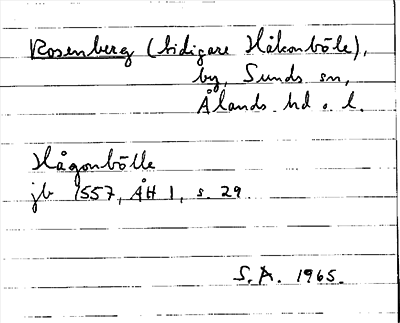 Rosenberg (tidigare Håkonböle),
by, Sunds sn,
Ålands hd o. l.
Hågonbölle
jb 1557, ÅH 1, s. 29
S.A. 1965.